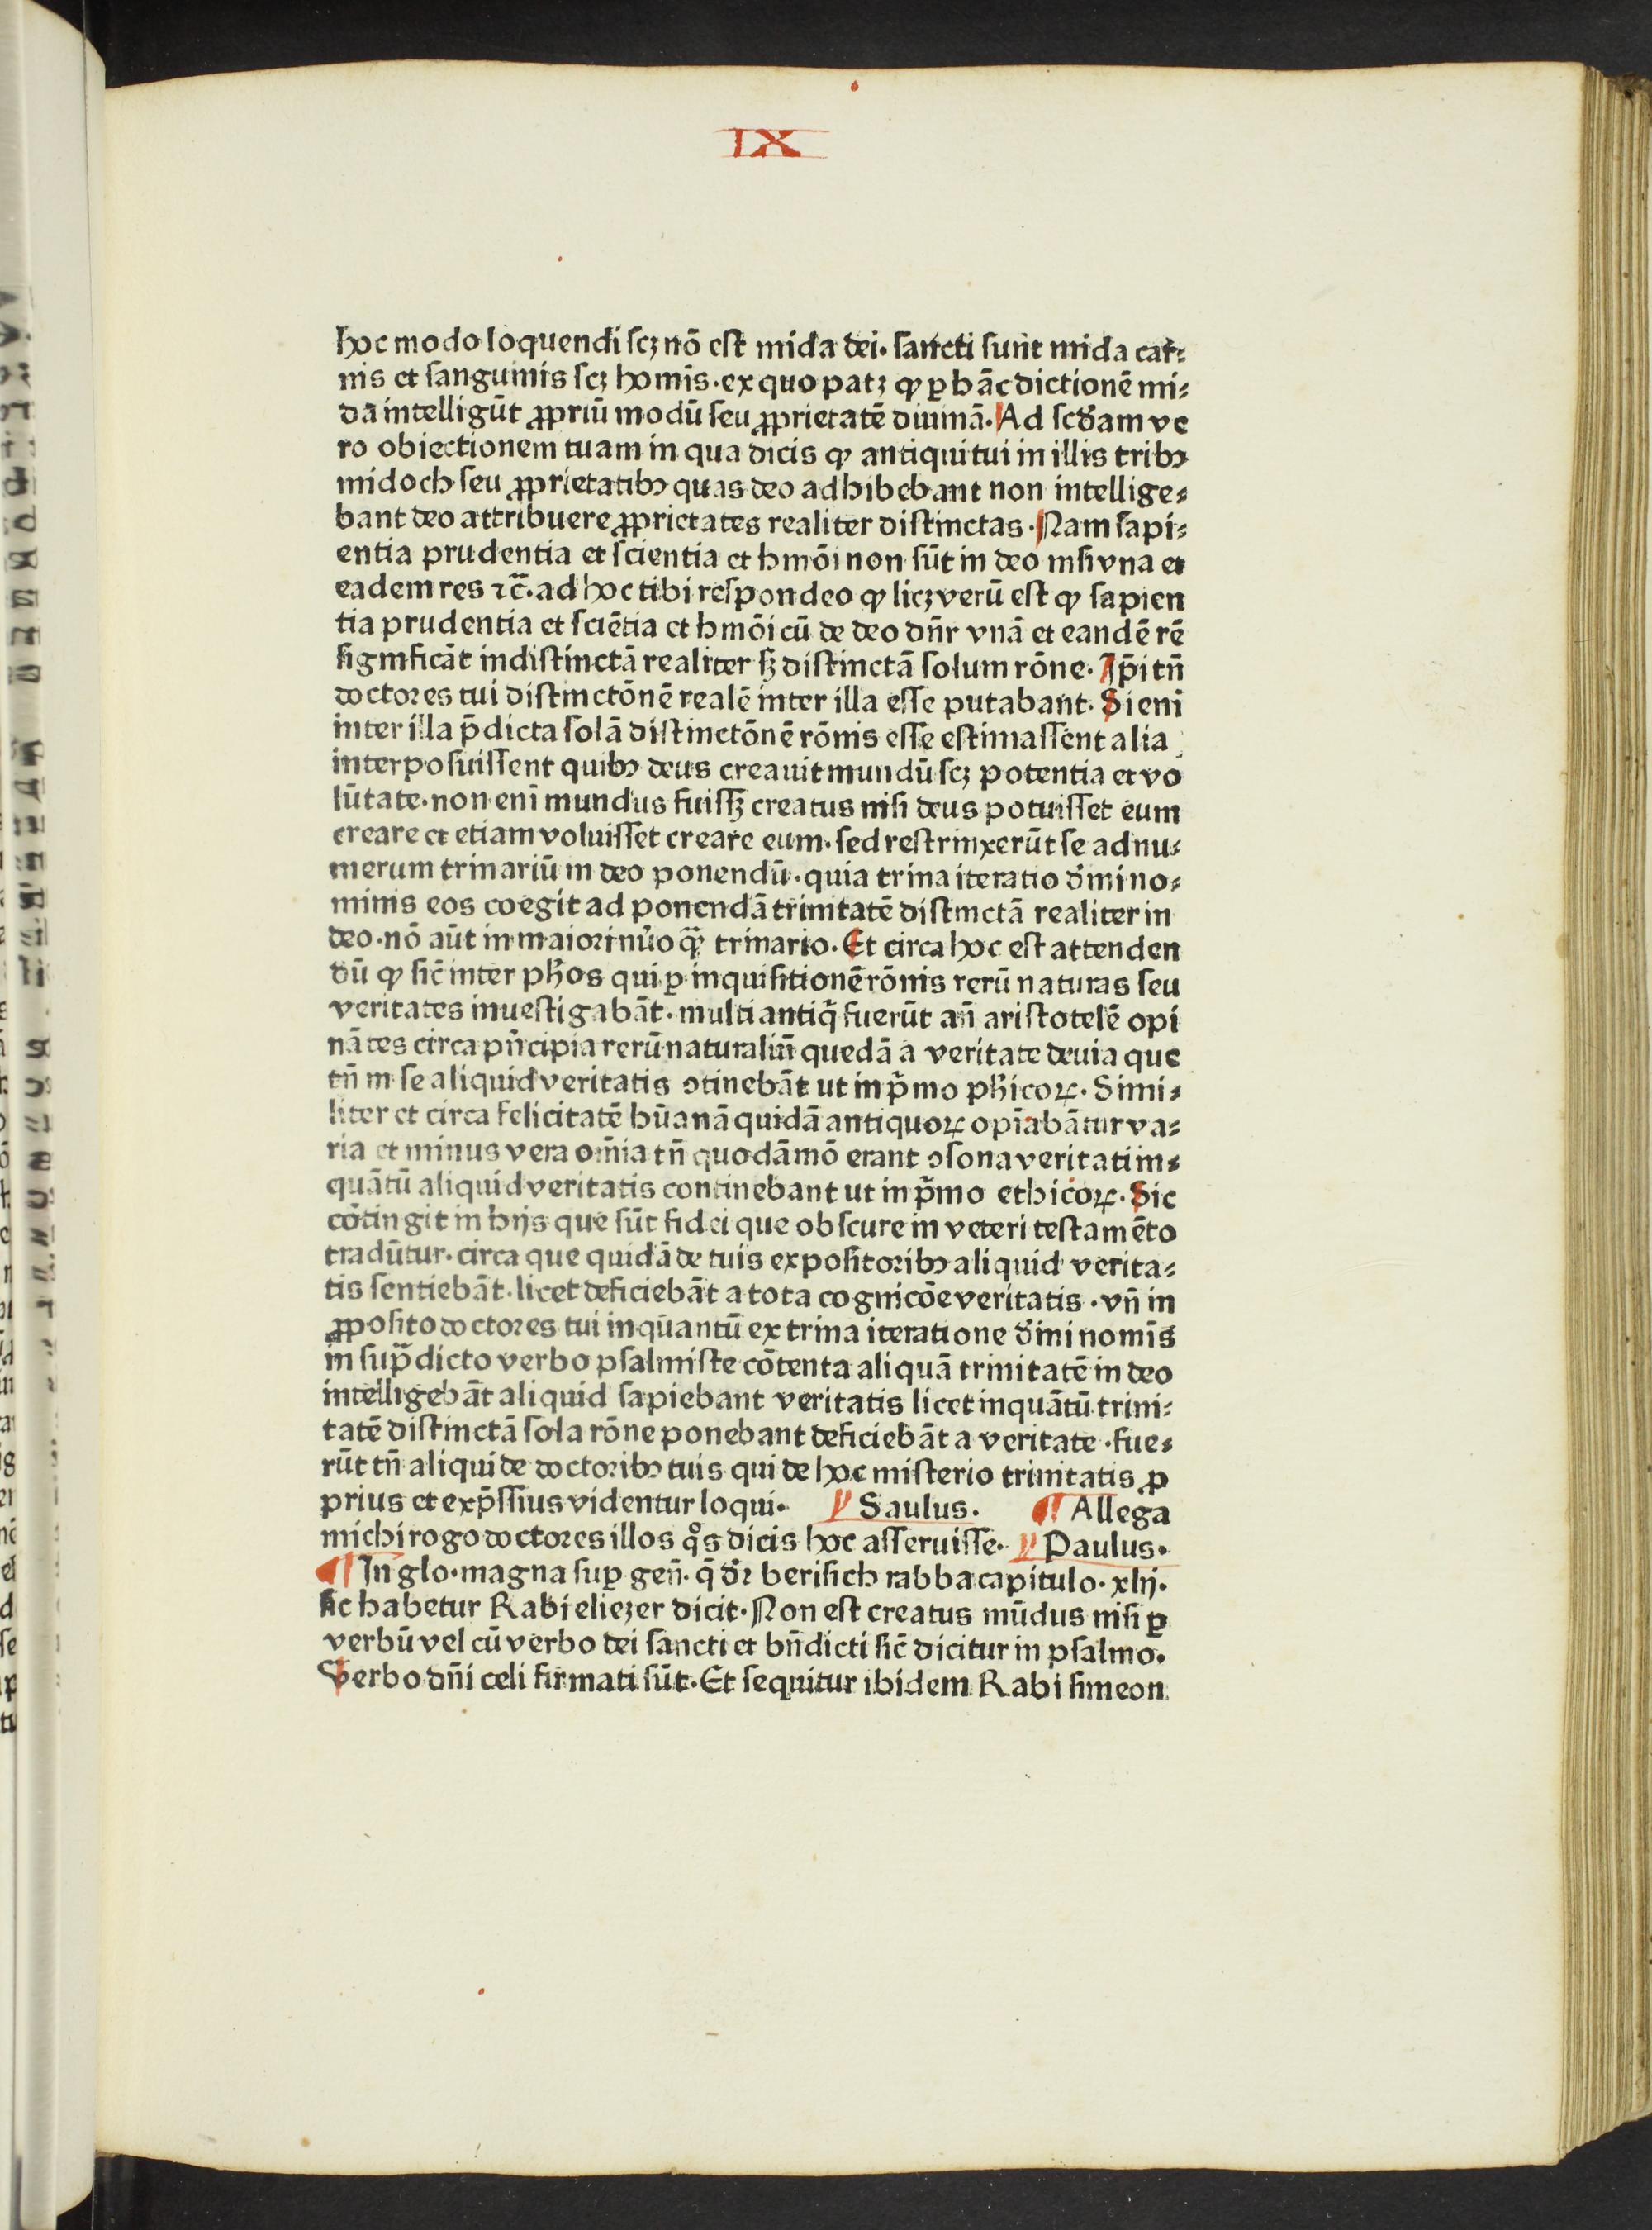 IX
hoc modo loquendi scꝫ nō est mida dei. sancti sunt mida car⸗
nis et sanguinis scꝫ homīs. ex quo patꝫ ꝙ ꝑ hāc dictionē mi⸗
dā intelligūt ꝓpriū modū seu ꝓprietatē diuinā. Ad scd̄am ve
ro obiectionem tuam in qua dicis ꝙ antiqui tui in illis tribꝫ
midoch seu ꝓprietatibꝫ quas deo adhibebant non intellige⸗
bant deo attribuere ꝓprietates realiter distinctas. Nam sapi⸗
entia prudentia et scientia et hmōi non sūt in deo nisi vna et
eadem res ⁊c̄. ad hoc tibi respondeo ꝙ licꝫ verū est ꝙ sapien
tia prudentia et sciētia et hmōi cū de deo dn̄r vnā et eandē rē
significāt indistinctā realiter sꝫ distinctā solum rōne. Ip̄i tn̄
doctores tui distinctōnē realē inter illa esse putabant. Si enī
inter illa p̄dicta solā distinctōnē rōnis esse estimassent alia
interposuissent quibꝫ deus creauit mundū scꝫ potentia et vo
lūtate. non enī mundus fuissꝫ creatus nisi deus potuisset eum
creare et etiam voluisset creare eum. sed restrinxerūt se ad nu⸗
merum trinariū in deo ponendū. quia trina iteratio d̄mi no⸗
minis eos coegit ad ponendā trinitatē distinctā realiter in
deo. nō aūt in maiori nūo qᷓꝫ trinario. Et circa hoc est attenden
dū ꝙ sic̄ inter ph̄os qui ꝑ inquisitionē rōnis rerū naturas seu
veritates inuestigabāt. multi antiq̄ fuerūt an̄ aristotelē opi
nātes circa pn̄cipia rerū naturaliū quedā a veritate deuia que
tn̄ in se aliquid veritatis ꝯtinebāt ut in p̄mo ph̄icoꝝ. Simi⸗
liter et circa felicitatē hūanā quidā antiquoꝝ opīabātur va⸗
ria et minus vera om̄ia tn̄ quodāmō erant ꝯsona veritati in⸗
quātū aliquid veritatis continebant ut in p̄mo ethicoꝝ. Sic
cōtingit in hijs que sūt fidei que obscure in veteri testamēto
tradūtur. circa que quidā de tuis expositoribꝫ aliquid verita⸗
tis sentiebāt. licet deficiebāt a tota cognicōe veritatis. vn̄ in
ꝓposito doctores tui inqūantū ex trina iteratione d̄mi nomīs
in supᷓdicto verbo psalmiste cōtenta aliquā trinitatē in deo
intelligebāt aliquid sapiebant veritatis licet inquātū trini⸗
tatē distinctā sola rōne ponebant deficiebāt a veritate. fue⸗
rūt tn̄ aliqui de doctoribꝫ tuis qui de hoc misterio trinitatis ꝓ
prius et exp̄ssius videntur loqui. Saulus. Allega
michi rogo doctores illos qͦs dicis hoc asseruisse. Paulus.
In glo. magna suꝑ gen̄. q̄ dr̄ berisich rabba capitulo. xlij.
sic habetur Rabi eliezer dicit. Non est creatus mūdus nisi ꝑ
verbū vel cū verbo dei sancti et bn̄dicti sic̄ dicitur in psalmo.
Verbo dn̄i celi firmati sūt. Et sequitur ibidem Rabi simeon